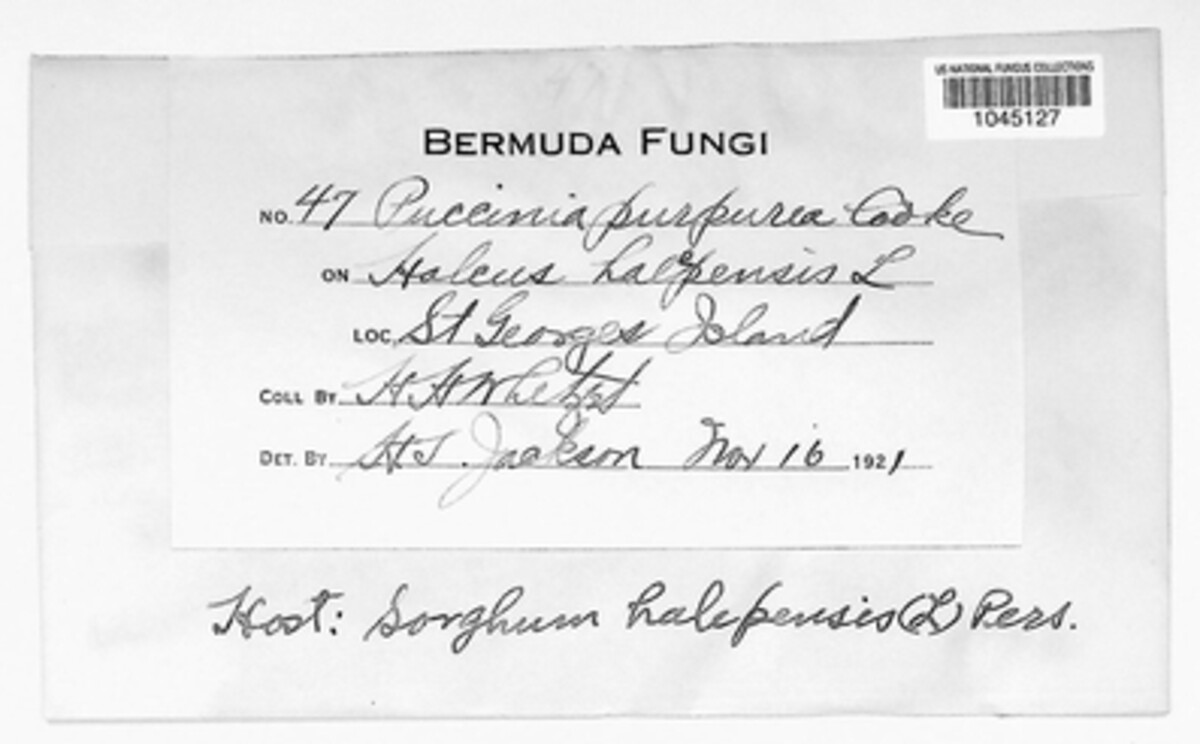 US NATIONAL FUNGUS COLLECTIONS
1045127
BERMUDA FUNGI
NO. 47 Puccinia purpurea Cooke
ON Holcus halepensis L
LOC. St Georges Island
COLL BY H H Whetzel
DET. BY H S. Jackson Nov 16 1921
Host: Sorghum halepensis (L) Pers.